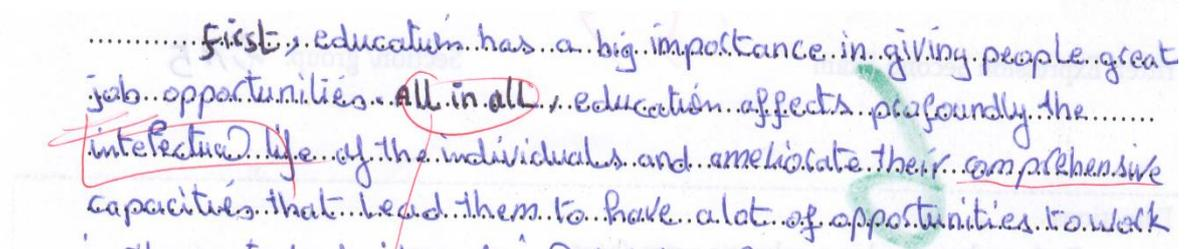 First, education has a big importance in giving people great
job opportunities. All in all, education affects profoundly the
intelectual life of the individuals and ameliorate their comprehensive
capacities that lead them to have alot of opportunities to work